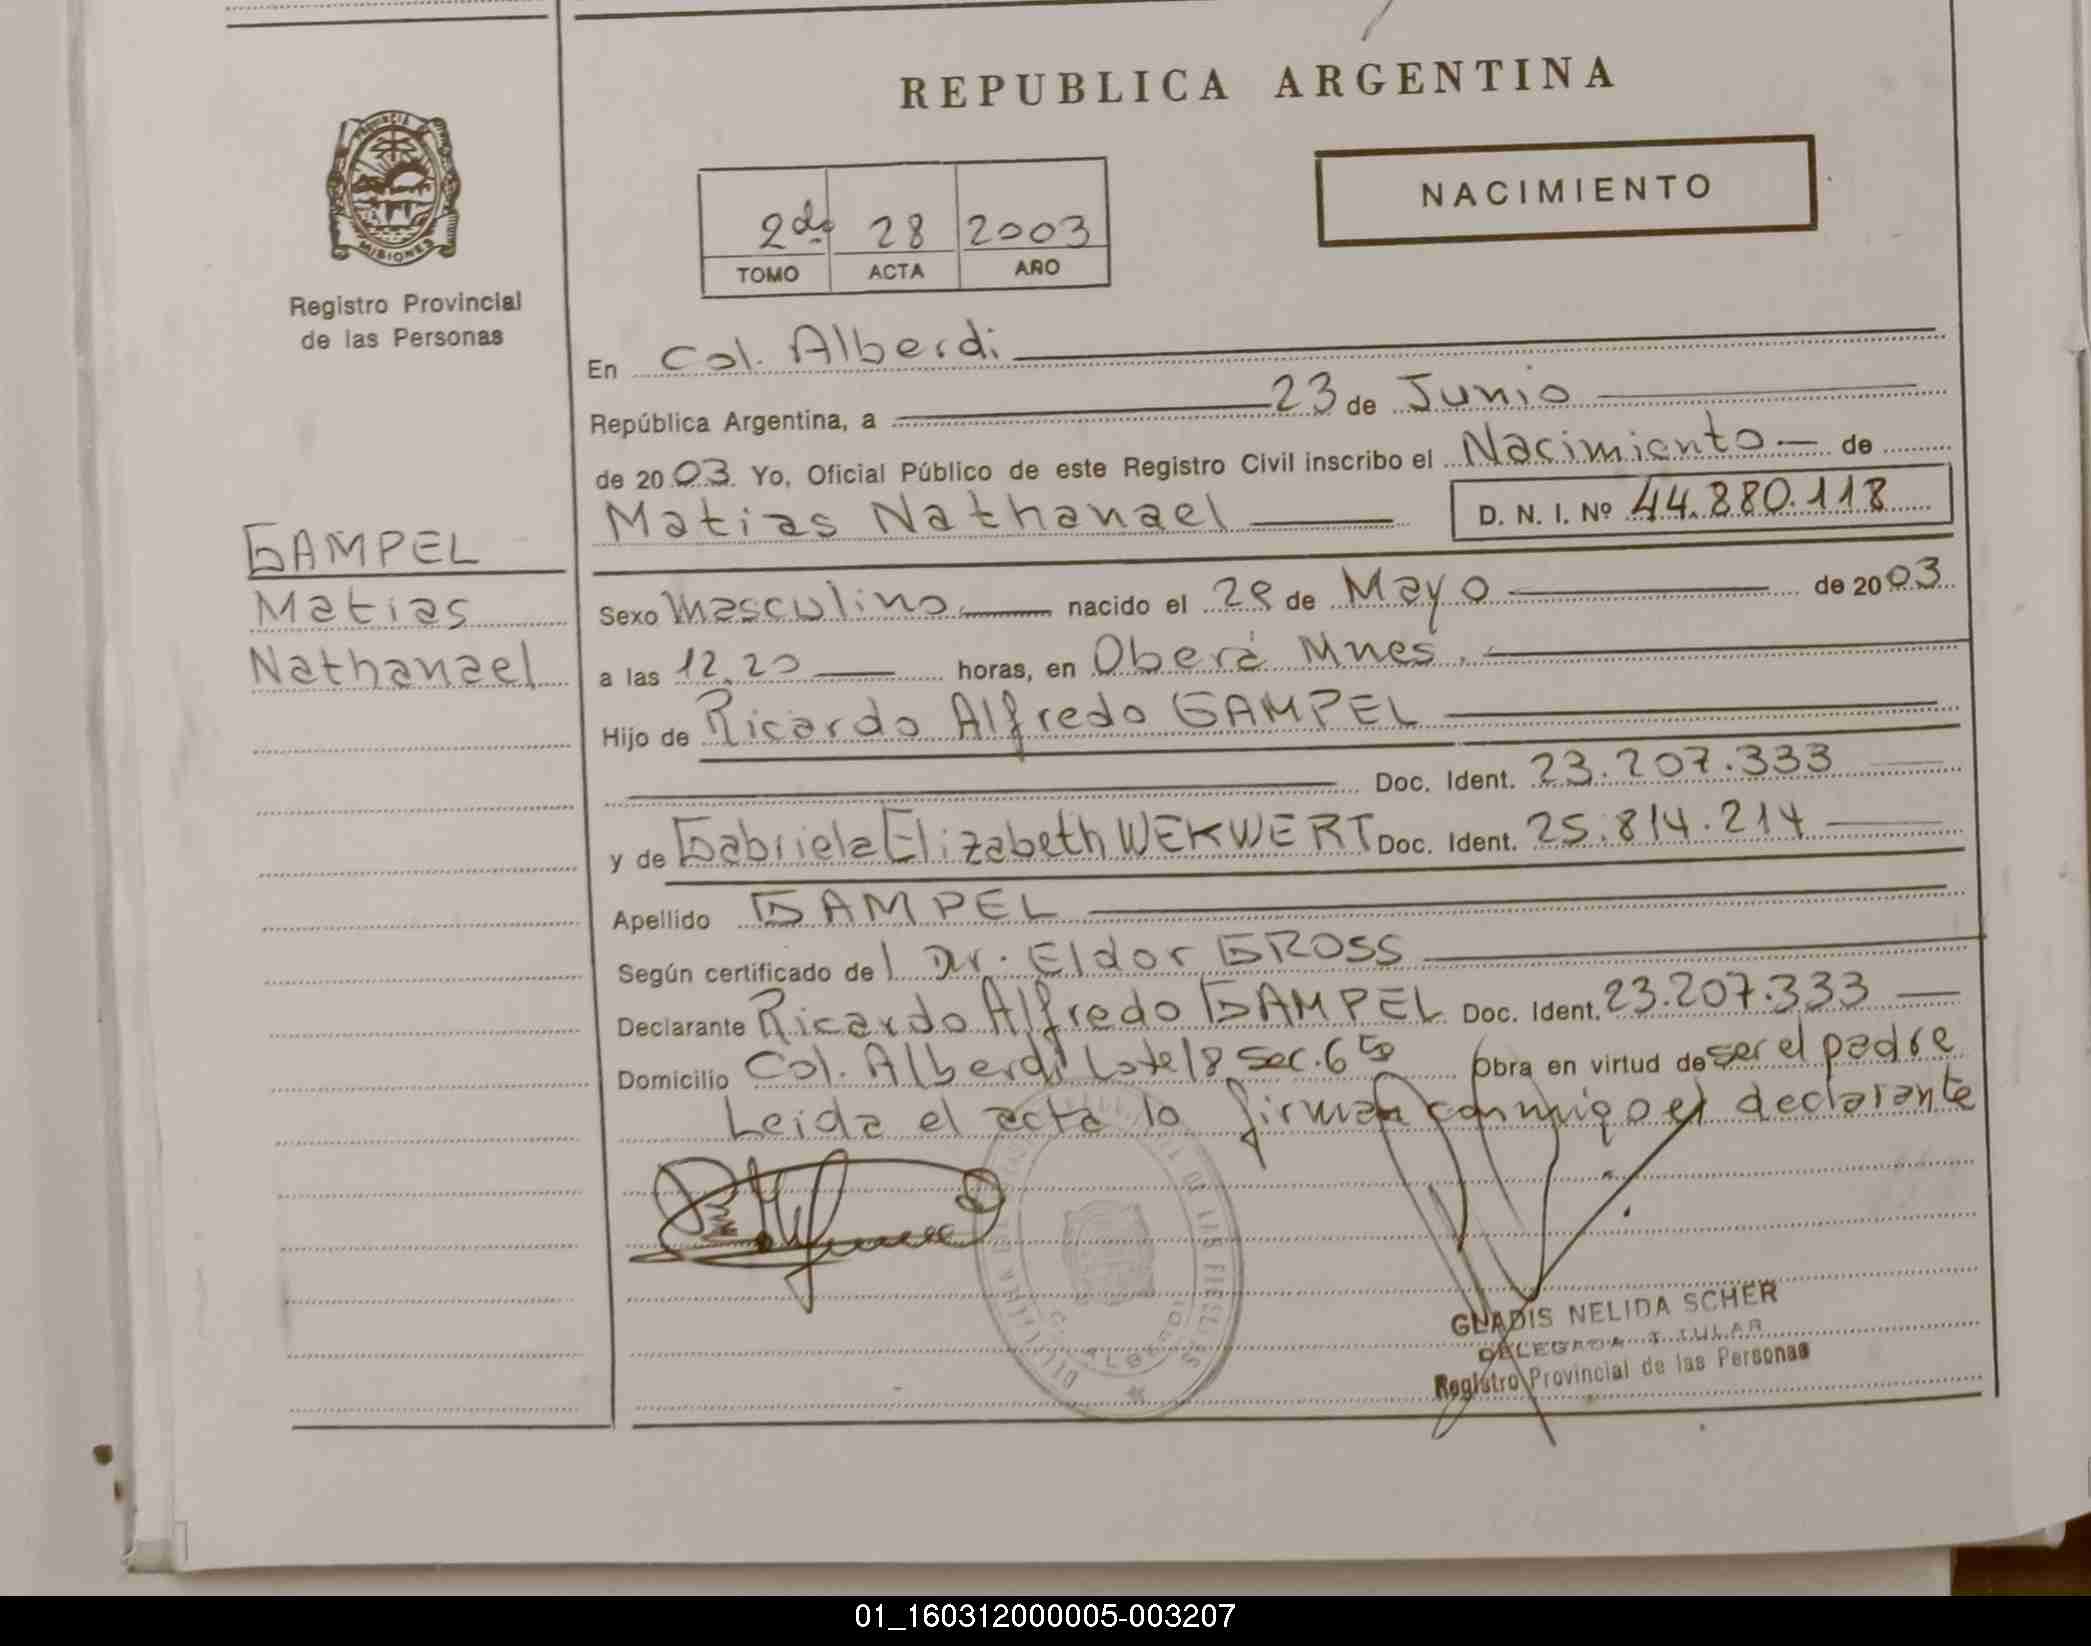 REPUBLICA ARGENTINA
NACIMIENTO
2do 28 2003
TOMO ACTA AÑO
PROVINCIA DE
MISIONES
Registro Provincial
de las Personas
GAMPEL
Matias
Nathanael
En Col. Alberdi
República Argentina, a 23 de Junio
de 2003. Yo, Oficial Público de este Registro Civil inscribo el Nacimiento de
Matias Nathanael D. N. I. Nº 44.880.118
Sexo Masculino nacido el 28 de Mayo de 2003
a las 12.20 horas, en Oberá Mnes.
Hijo de Ricardo Alfredo GAMPEL
Doc. Ident. 23.207.333
y de Gabriela Elizabeth WEKWERT Doc. Ident. 25.814.214
Apellido GAMPEL
Según certificado del Dr. Eldor GROSS
Declarante Ricardo Alfredo GAMPEL Doc. Ident. 23.207.333
Domicilio Col. Alberdi Lote 18 Sec. 6ta Obra en virtud de ser el padre
Leida el acta la firman conmigo el declarante
GLADIS NELIDA SCHER
DELEGADA TITULAR
Registro Provincial de las Personas
01_160312000005-003207